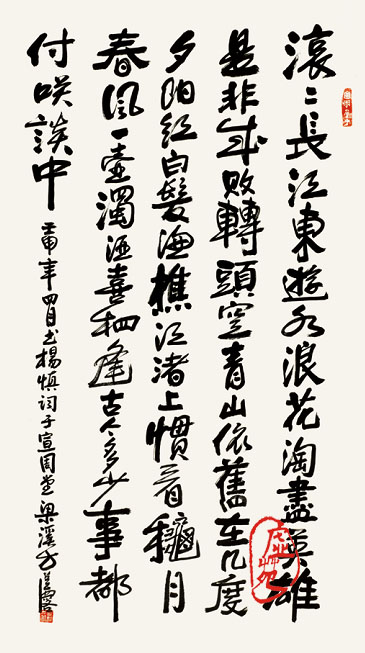 滚〻長江東遊水浪花淘盡英雄
是非成敗轉頭空青山依舊在几度
夕阳紅白髮漁樵江渚上慣看龝月
春風一壺濁酒喜相逢古今多少事都
付咲談中
壬申年四月书楊慎词于宣周堂梁溪